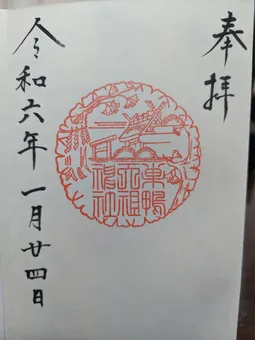 奉拝
巣鴨
天祖
神社
令和六年一月廿四日